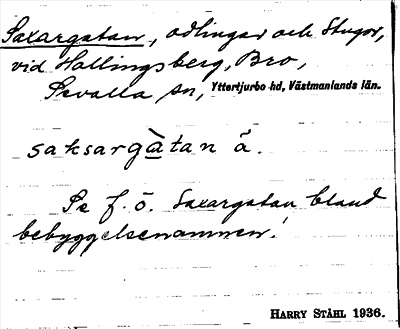 Saxargatan, odlingar och stugor,
vid Hallingsberg, Bro,
Sevalla sn, Yttertjurbo hd, Västmanlands län.
saksargàtan ä.
Se f. ö. Saxargatan bland
bebyggelsenamnen!
HARRY STÅHL 1936.